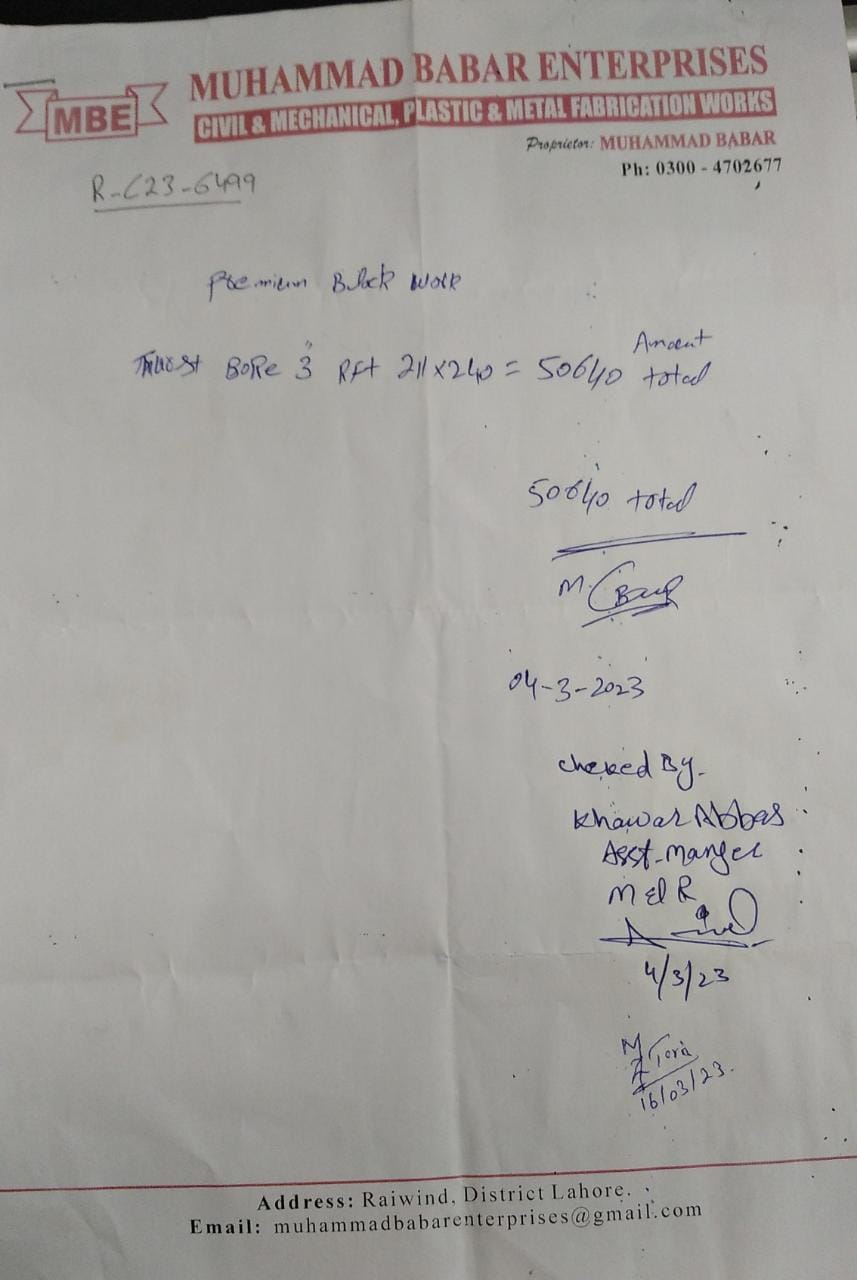 MBE
MUHAMMAD BABAR ENTERPRISES
CIVIL & MECHANICAL, PLASTIC & METAL FABRICATION WORKS
Proprietor: MUHAMMAD BABAR
Ph: 0300 - 4702677
R-C23-6499
Premium Block Work
BoRe 3" Rft 211x240 = 50640 Amount total
50640 total
M.
04-3-2023
Checked By-
Khawar Abbas
Asst-Manger
M & R
4/3/23
16/03/23.
Address: Raiwind, District Lahore.
Email: muhammadbabarenterprises@gmail.com